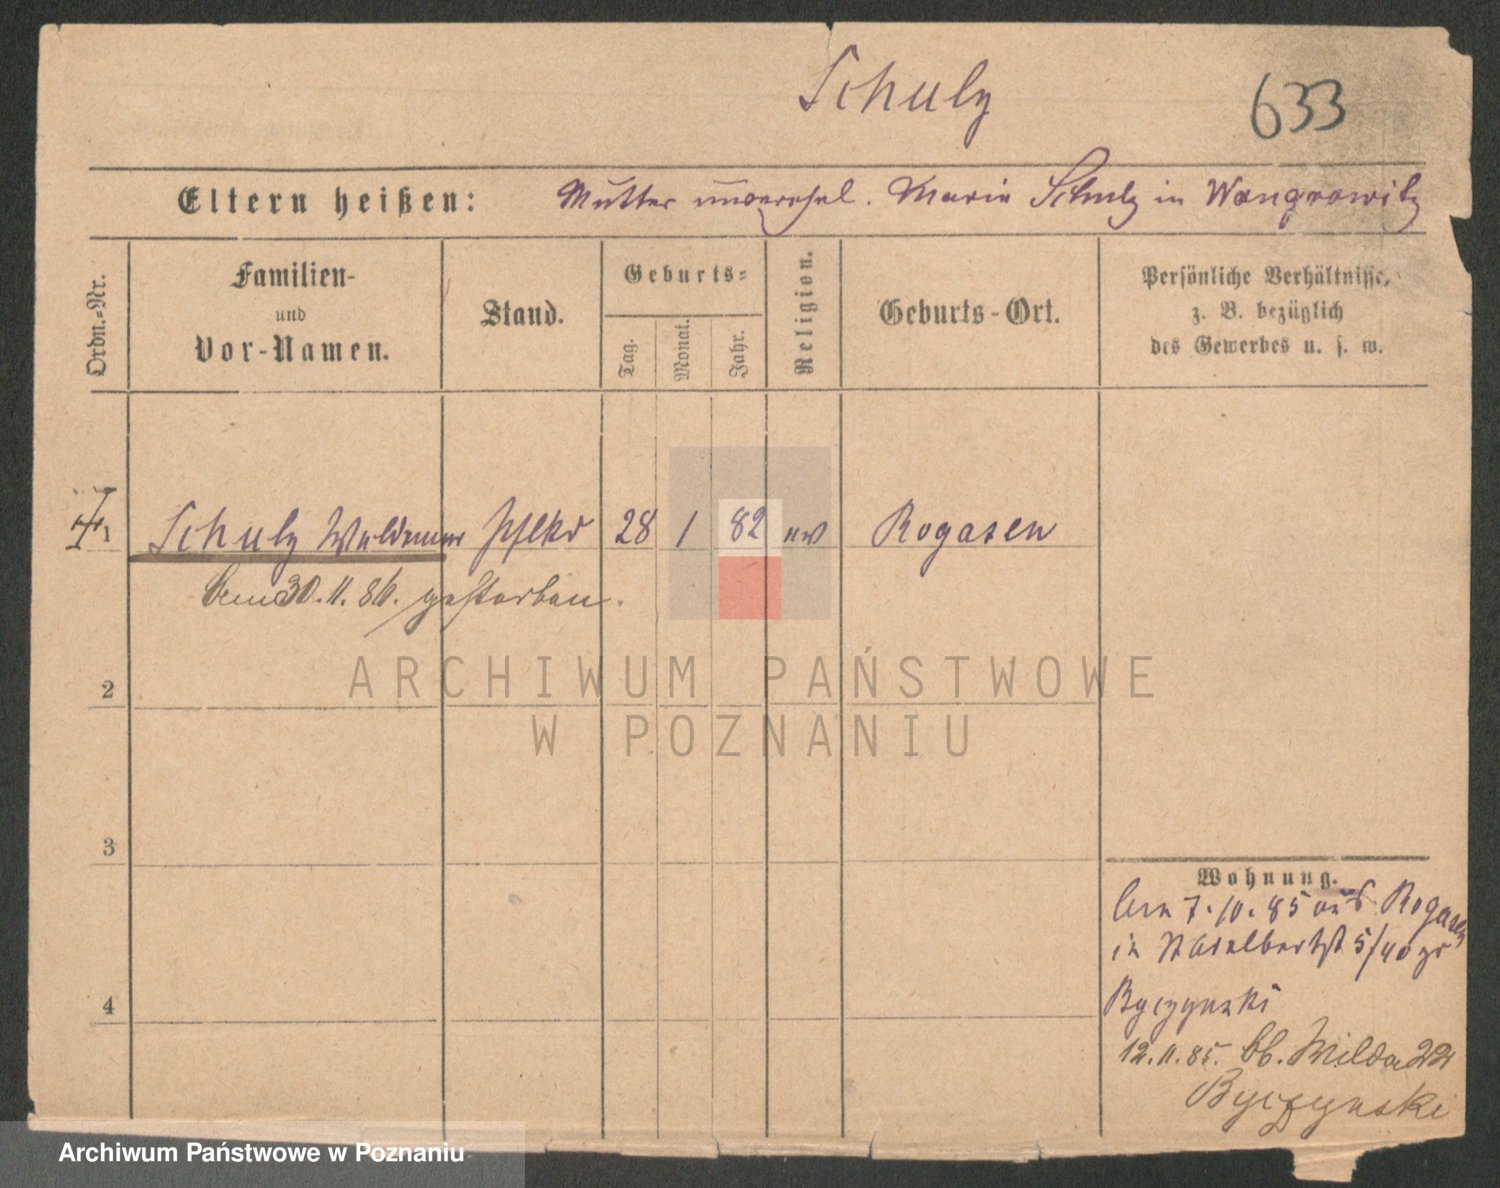 Schulz
633
Eltern heißen: Mutter unverehel. Marie Schulz in Wongrowitz
Ordn.-Nr.
Familien-
und
Vor-Namen.
Stand.
Geburts-
Tag.
Monat.
Jahr.
Religion.
Geburts-Ort.
Persönliche Verhältnisse,
z. B. bezüglich
des Gewerbes u. s. w.
1 Schulz Waldemar Pflkd 28 1 82 ev Rogasen
30.11.86. gestorben.
2
3
4
Wohnung.
7.10.85 aus Rogasen
in St Adalbertst 5/40 zr
Byczynski
12.11.85. Wilda 22
Byczynski
ARCHIWUM PAŃSTWOWE
W POZNANIU
Archiwum Państwowe w Poznaniu